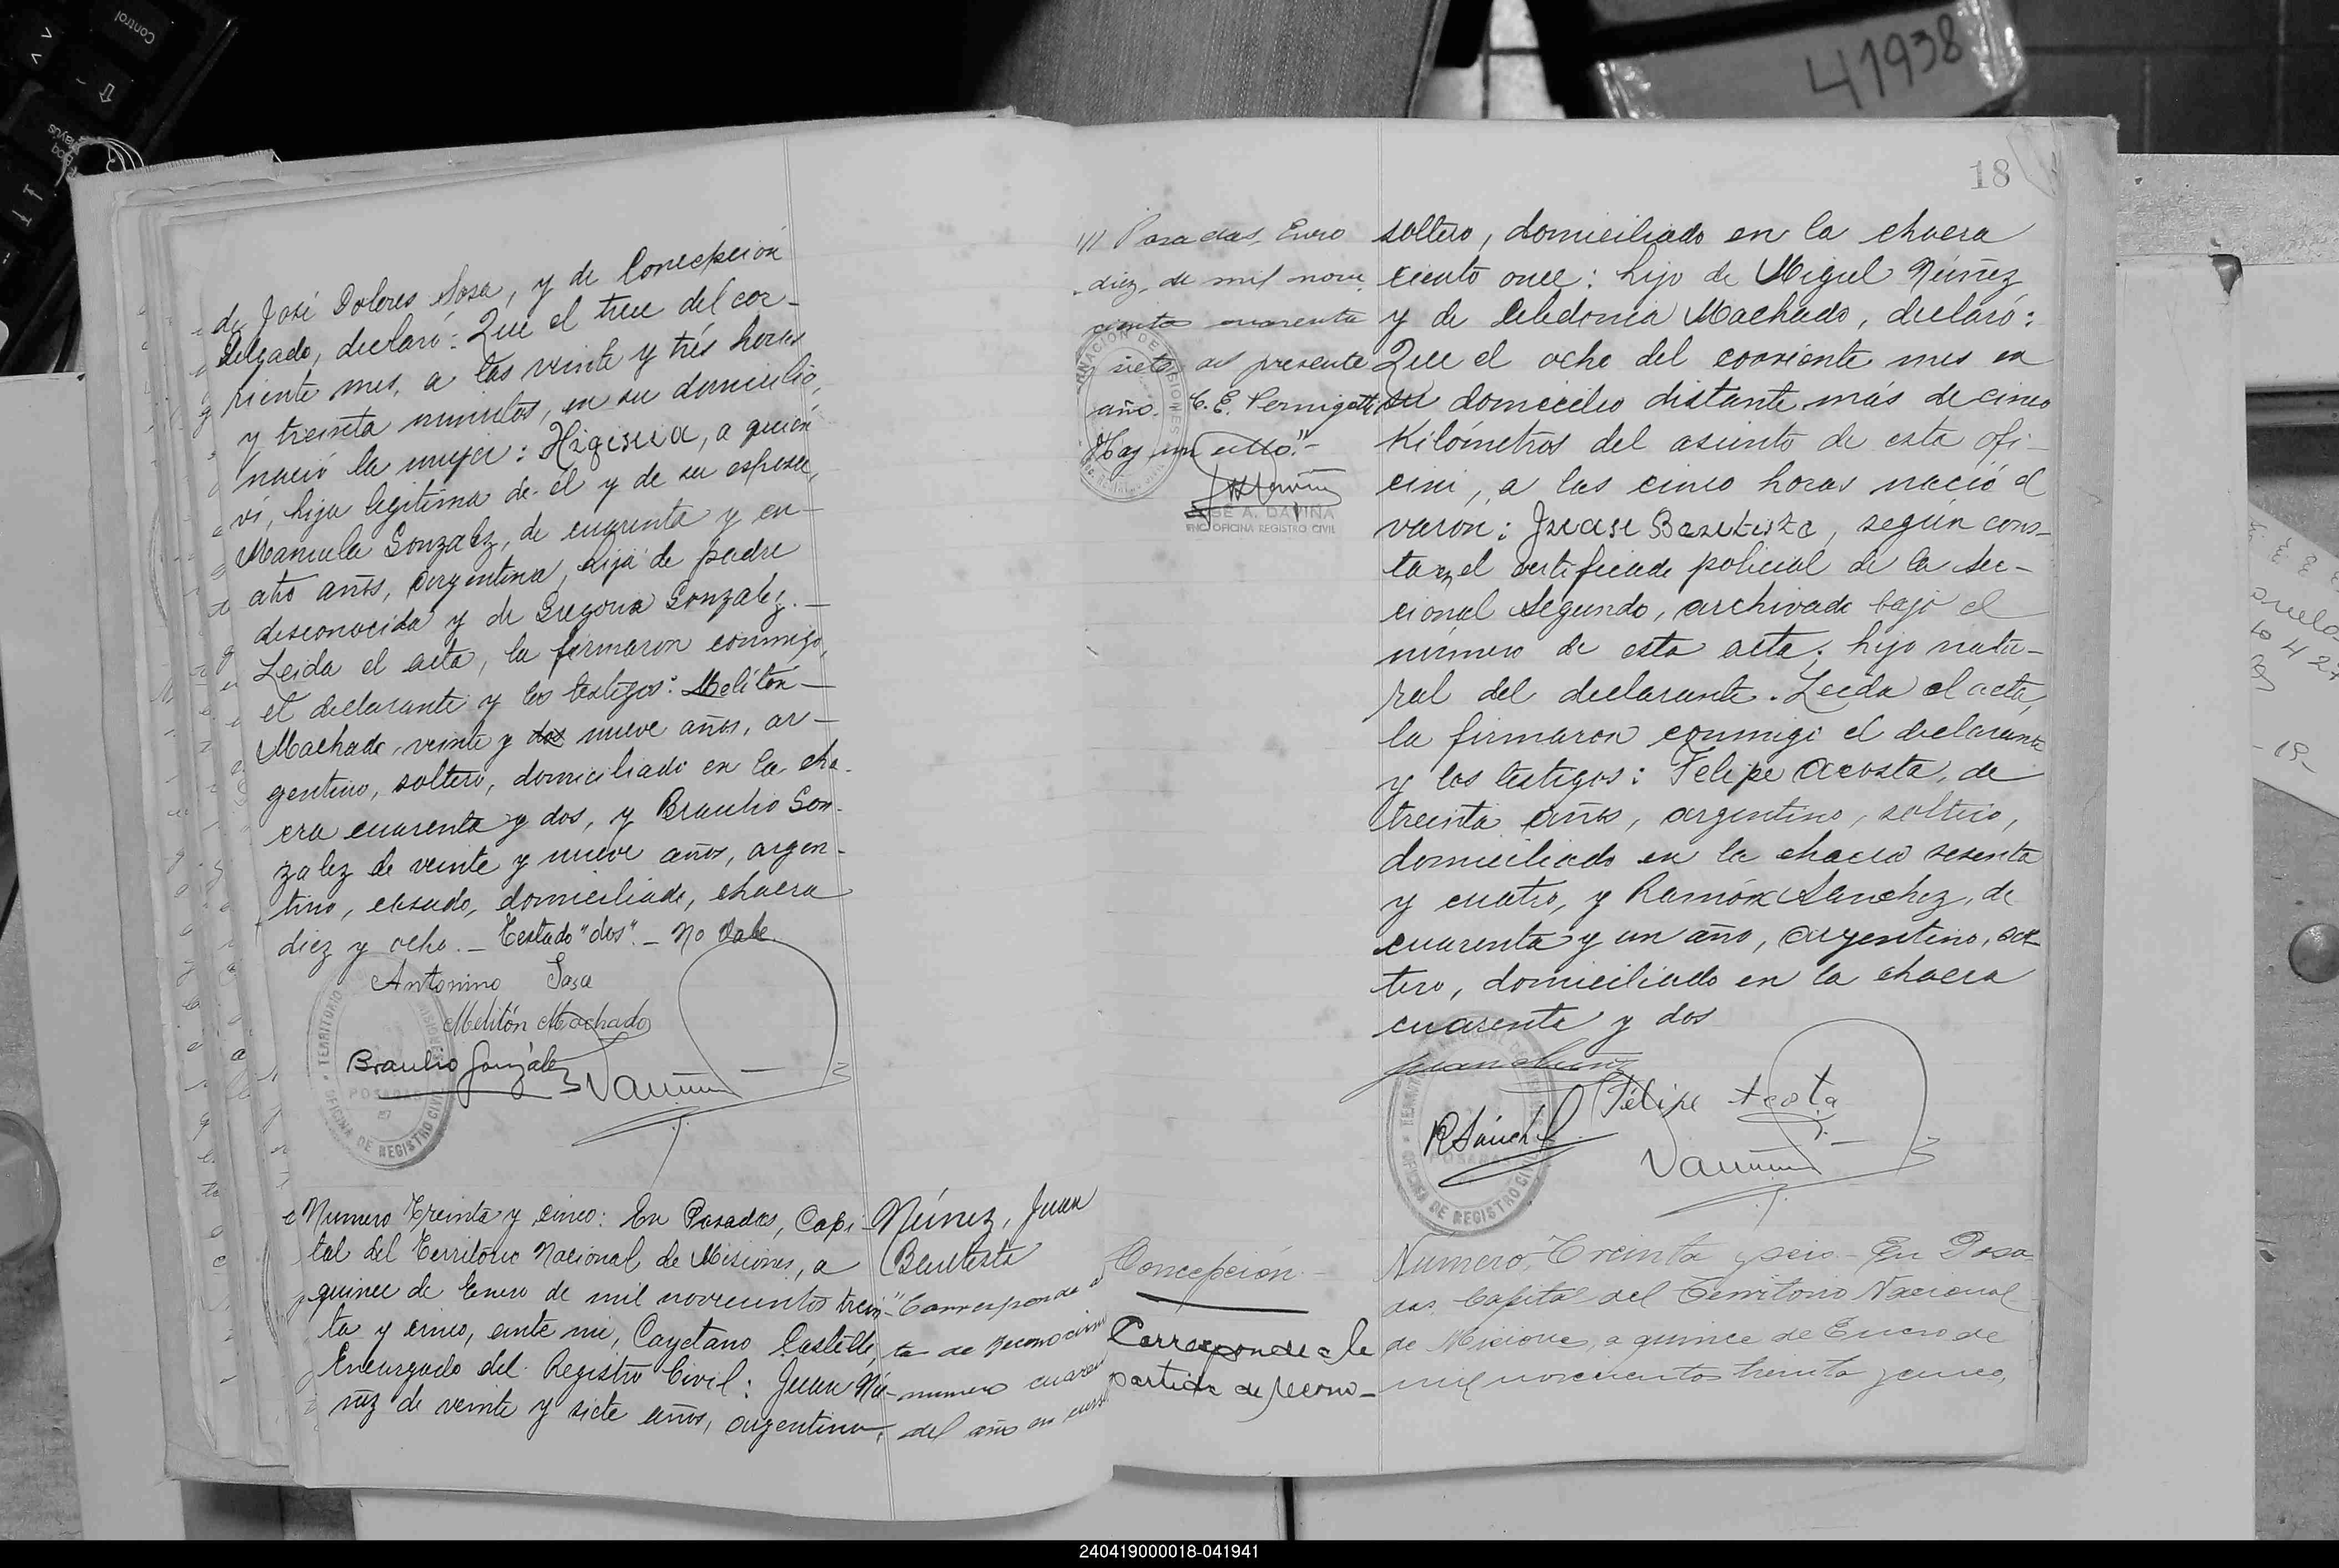 41938
Control
de José Dolores Sosa, y de Concepción
Delgado, declaró: Que el trece del cor-
riente mes, a las veinte y trés horas
y treinta minutos, en su domicilio,
nació la mujer: Higinia, a quién
ví, hija legítima de él y de su esposa,
Manuela Gonzalez, de cuarenta y cu-
atro años, argentina, hija de padre
desconocido y de Gregoria Gonzalez.—
Leida el acta, la firmaron conmigo,
el declarante y los testigos: Melitón—
Machado, veinte y dos nueve años, ar-
gentino, soltero, domiciliado en la cha-
cra cuarenta y dos, y Braulio Gon-
zalez de veinte y nueve años, argen-
tino, casado, domiciliado, chacra
diez y ocho.— Testado "dos".— No Vale.
Antonino Sosa
Melitón Machado
Braulio González
TERRITORIO
POSADAS
OFICINA DE REGISTRO CIVIL
Numero Treinta y cinco: En Posadas, Capi-
tal del Territorio Nacional de Misiones, a
quince de Enero de mil novecientos trein-
ta y cinco, ante mi, Cayetano Castelli,
Encargado del Registro Civil: Juan Nú-
ñez de veinte y siete años, argentino,
Núnez, Juan
Bautista
"Corresponde a
ta de reconocimi
numero cuaren
del año en curso
18
/// Posadas, Enero
diez, de mil nove
cientos cuarenta
siete al presente
año. C. E. Pernigotti
Hay un sello."-
JOSÉ A. DAVIÑA
ENC. OFICINA REGISTRO CIVIL
soltero, domiciliado en la chacra
ciento once: hijo de Miguel Núñez
y de Celedonia Machado, declaró:
Que el ocho del corriente mes en
su domicilio distante más de cinco
Kilómetros del asiento de esta ofi-
cina, a las cinco horas nació el
varón: Juan Bautista, según cons-
ta en el certificado policial de la Sec-
cional Segunda, archivado bajo el
número de esta acta; hijo natu-
ral del declarante. Leida el acta,
la firmaron conmigo el declarante
y los testigos: Felipe Acosta, de
treinta años, argentino, soltero,
domiciliado en la chacra sesenta
y cuatro, y Ramón Sanchez, de
cuarenta y un año, argentino, sol-
tero, domiciliado en la chacra
cuarenta y dos
Juan Nuñez
Felipe Acosta
R Sánchez
POSADAS
OFICINA DE REGISTRO CIVIL
Concepción
Corresponde a la
partida de recono-
Numero, Treinta y seis- En Posa-
das Capital del Territorio Nacional
de Misiones, a quince de Enero de
mil novecientos treinta y cinco,
240419000018-041941